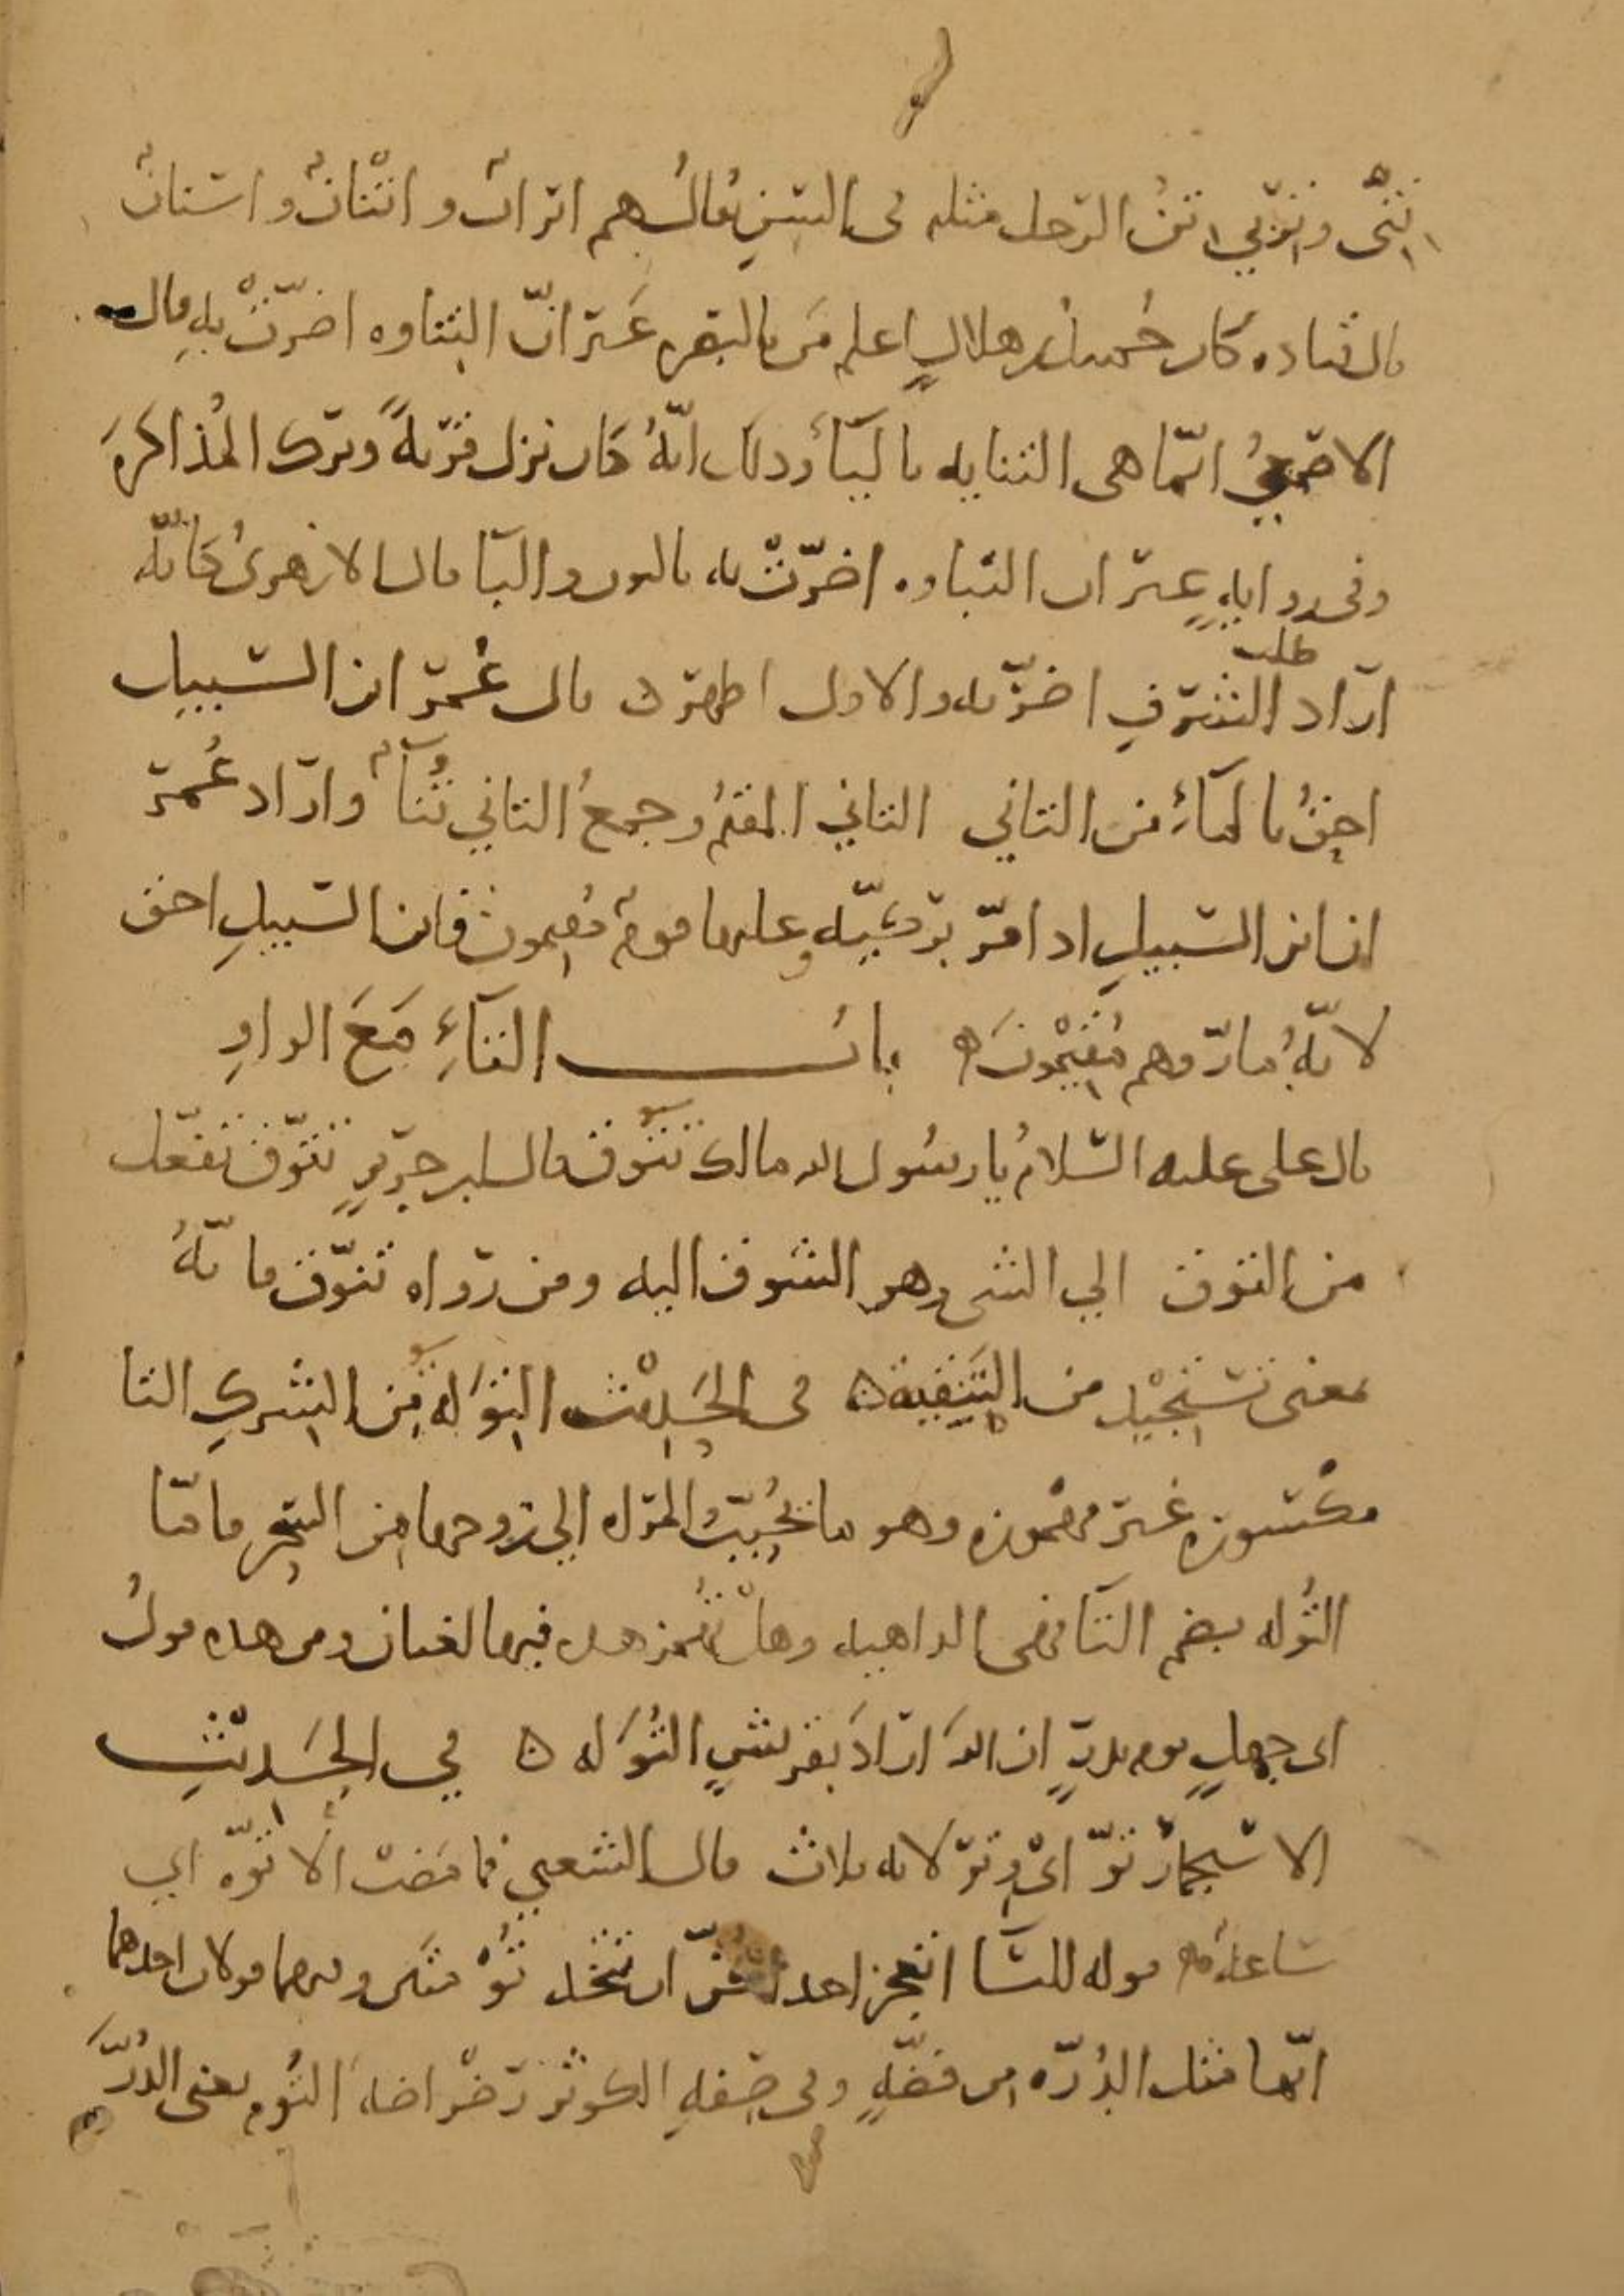 تنى وتربى تن الرجل مثله فى السن يقال هم اتراب واتنان واسنان
قال قتاده كان حميد بن هلال اعلم من بالبصره غير ان التناوه اضرت به قال
الاصمعي انما هى التنايه باليآء وذلك انه كان نزل قرية وترك المذاكرة
وفى روايه غير ان النباوه اضرت به بالنون والبا قال الازهرى كانه
اراد طلب الشرف اضر به والاول اظهر ه قال عمر ابن السبيل
احق بالمآء من التاني التاني المقيم وجمع التاني تنآء واراد عمر
ان ابن السبيل اذا مر بركيه وعليها قوم مقيمون فابن السبيل احق
لانه مار وهم مقيمون ه باب التآء مع الواو
قال على عليه السلام يا رسول الله مالك تتوق قال ابن جرير تتوق تفعل
من التوق الي الشى وهو الشوق اليه ومن رواه تنوق فانه
بمعنى تستجيد من التنيقة ه فى الحديث التوله من الشرك التا
مكسوره غير مهموزه وهو ما يحبب المراه الي زوجها من السحر فاما
التوله بضم التا فهى الداهيه وهل تهمز هذه فيها لغتان ومن هذه قول
ابى جهل يوم بدر ان الله اراد بقريش التوله ه في الحديث
الاستجمار تو اى وتر لانه ثلاث قال الشعبي فما مضت الا توه اي
ساعة ه قوله للنسا اتعجز احداكن ان تتخذ تومتين وفيهما قولان احدهما
انها مثل الدره من فضة وفى صفة الكوثر رضراضه التوم يعنى الدر